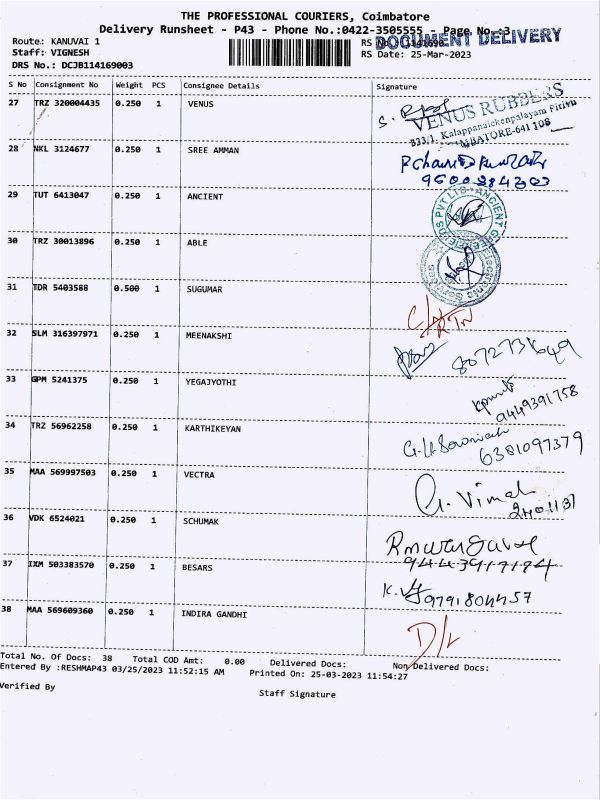 THE PROFESSIONAL COURIERS, Coimbatore
Delivery Runsheet - P43 - Phone No.:0422-3505555 - Page No.:3
DOCUMENT DELIVERY
Route: KANUVAI 1
Staff: VIGNESH
DRS No.: DCJB114169003
RS Date: 25-Mar-2023
S No Consignment No Weight PCS Consignee Details Signature
27 TRZ 320004435 0.250 1 VENUS
VENUS RUBBERS
833/1, Kalappanaickenpalayam Pirivu
28 NKL 3124677 0.250 1 SREE AMMAN
29 TUT 6413047 0.250 1 ANCIENT
30 TRZ 30013896 0.250 1 ABLE
31 TDR 5403588 0.500 1 SUGUMAR
32 SLM 316397971 0.250 1 MEENAKSHI
33 GPM 5241375 0.250 1 YEGAJYOTHI
9449391758
34 TRZ 56962258 0.250 1 KARTHIKEYAN
6381097379
35 MAA 569997503 0.250 1 VECTRA
G. Vimal
36 VDK 6524021 0.250 1 SCHUMAK
37 IXM 503383570 0.250 1 BESARS
38 MAA 569609360 0.250 1 INDIRA GANDHI
D/L
Total No. Of Docs: 38 Total COD Amt: 0.00 Delivered Docs: Non Delivered Docs:
Entered By :RESHMAP43 03/25/2023 11:52:15 AM Printed On: 25-03-2023 11:54:27
Verified By
Staff Signature